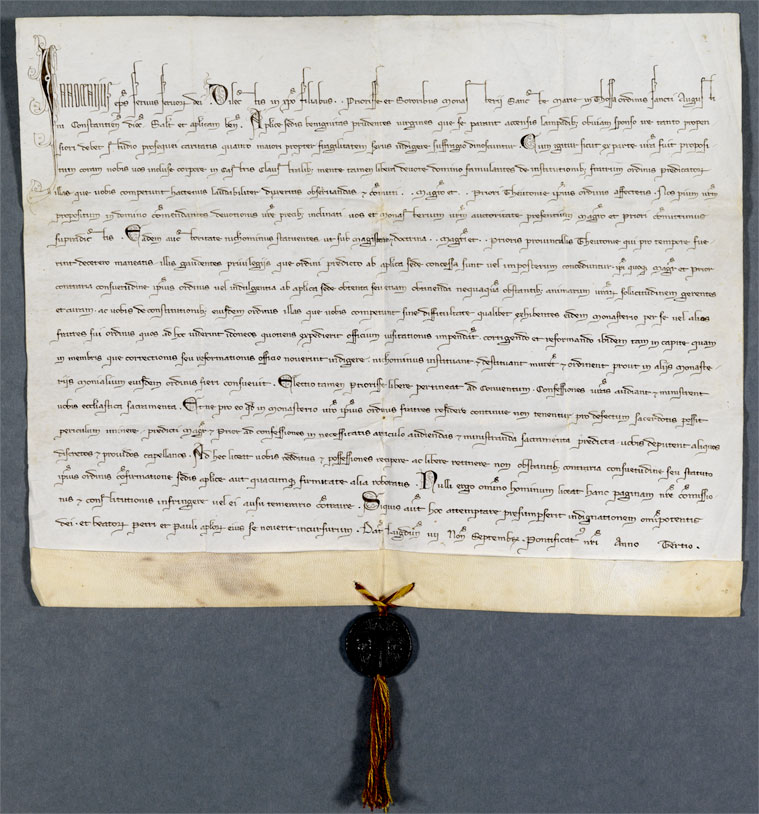 INNOCENTIUS ep̄s servus servoꝝ dei. Dilectis in xp̄o filiabus . . Priorisse et Sororibus monasterij Sancte Marie in Thosse ordinis sancti Augustini
in Constantien̄ dioc̄. Salt̄ et aplicam ben̄. Aplice sedis benignitas prudentes virgines que se parant accensis lampadib; obviam sponso ire tanto propen
siori debet studio prosequi caritatis quanto maiori propter fragilitatem sexus indigere suffragio dinoscuntur. Cum igitur sicut ex parte vrā fuit propositum
coram nobis vos incluse corpore in castris claustralib; mente tamen libera devote domino famulantes de institutionib; fratrum ordinis predicatoꝝ
illas que vobis competunt hactenus laudabiliter duxeritis observandas et . . magrō et . . Priori Theutonie ip̄ius ordinis affectetis. Nos pium vrm̄
propositum in domino cōmendantes devotionis vrē precib; inclinati vos et monasterium vrm̄ auctoritate presentium magrō et priori cōmittimus
supradictis. Eadem auctoritate nichominus statuentes ut sub magisterio et doctrina . . magrī et . . prioris provincialis Theutonie qui pro tempore fue
rint decetero maneatis illis gaudentes privilegijs que ordini predicto ab aplica sede concessa sunt vel imposterum concedentur. ip̄i quoq; magr̄ et prior
contraria consuetudine ip̄ius ordinis vel indulgentia ab aplica sede obtenta seu etiam obtinenda nequaq̄ā obstantib; animarum vrāꝝ sollicitudinem gerentes
et curam. ac vobis de constitutionib; eiusdem ordinis illas que vobis competunt sine difficultate qualibet exhibentes eidem monasterio per se vel alios
fratres sui ordinis quos ad hoc viderint idoneos quotiens expedierit officium visitationis impendāt. corrigendo et reformando ibidem tam in capite quam
in membris que correctionis seu reformationis officio noverint indigere. nichominus instituant et destituant mutēt et ordinent prout in alijs monaste
rijs monialium eiusdem ordinis fieri consuevit. Electio tamen priorisse libere pertineat ad Conventum. Confessiones vrās audiant et ministrent
vobis ecclastica sacramenta. Et ne pro eo qd̄ in monasterio vrō ip̄ius ordinis fratres residere continue non tenentur pro defectu sacerdotis possit
periculum iminere. predicti magr̄ et Prior ad confessiones in necessitatis articulo audiendas et ministranda sacramenta predicta vobis deputent aliquos
discretos et providos capellanos. Ad hec liceat vobis redditus et possessiones recipere ac libere retinere non obstantib; contraria consuetudine seu statuto
ip̄ius ordinis cōfirmatione sedis aplice aut quacumq; firmitate alia roboratis. Nulli ergo om̄ino hominum liceat hanc paginam nrē cōmissio
nis et constitutionis infringere vel ei ausu temerario cōtraire. Siquis aut̄ hoc attemptare presumpserit indignationem om̄ipotentis
dei. et beatoꝝ Petri et Pauli aploꝝ eius se noverit incursurum. Dat̄ Lugdun̄ iiij Non̄ Septembr̄. Pontificat̄ nrī Anno Tertio.